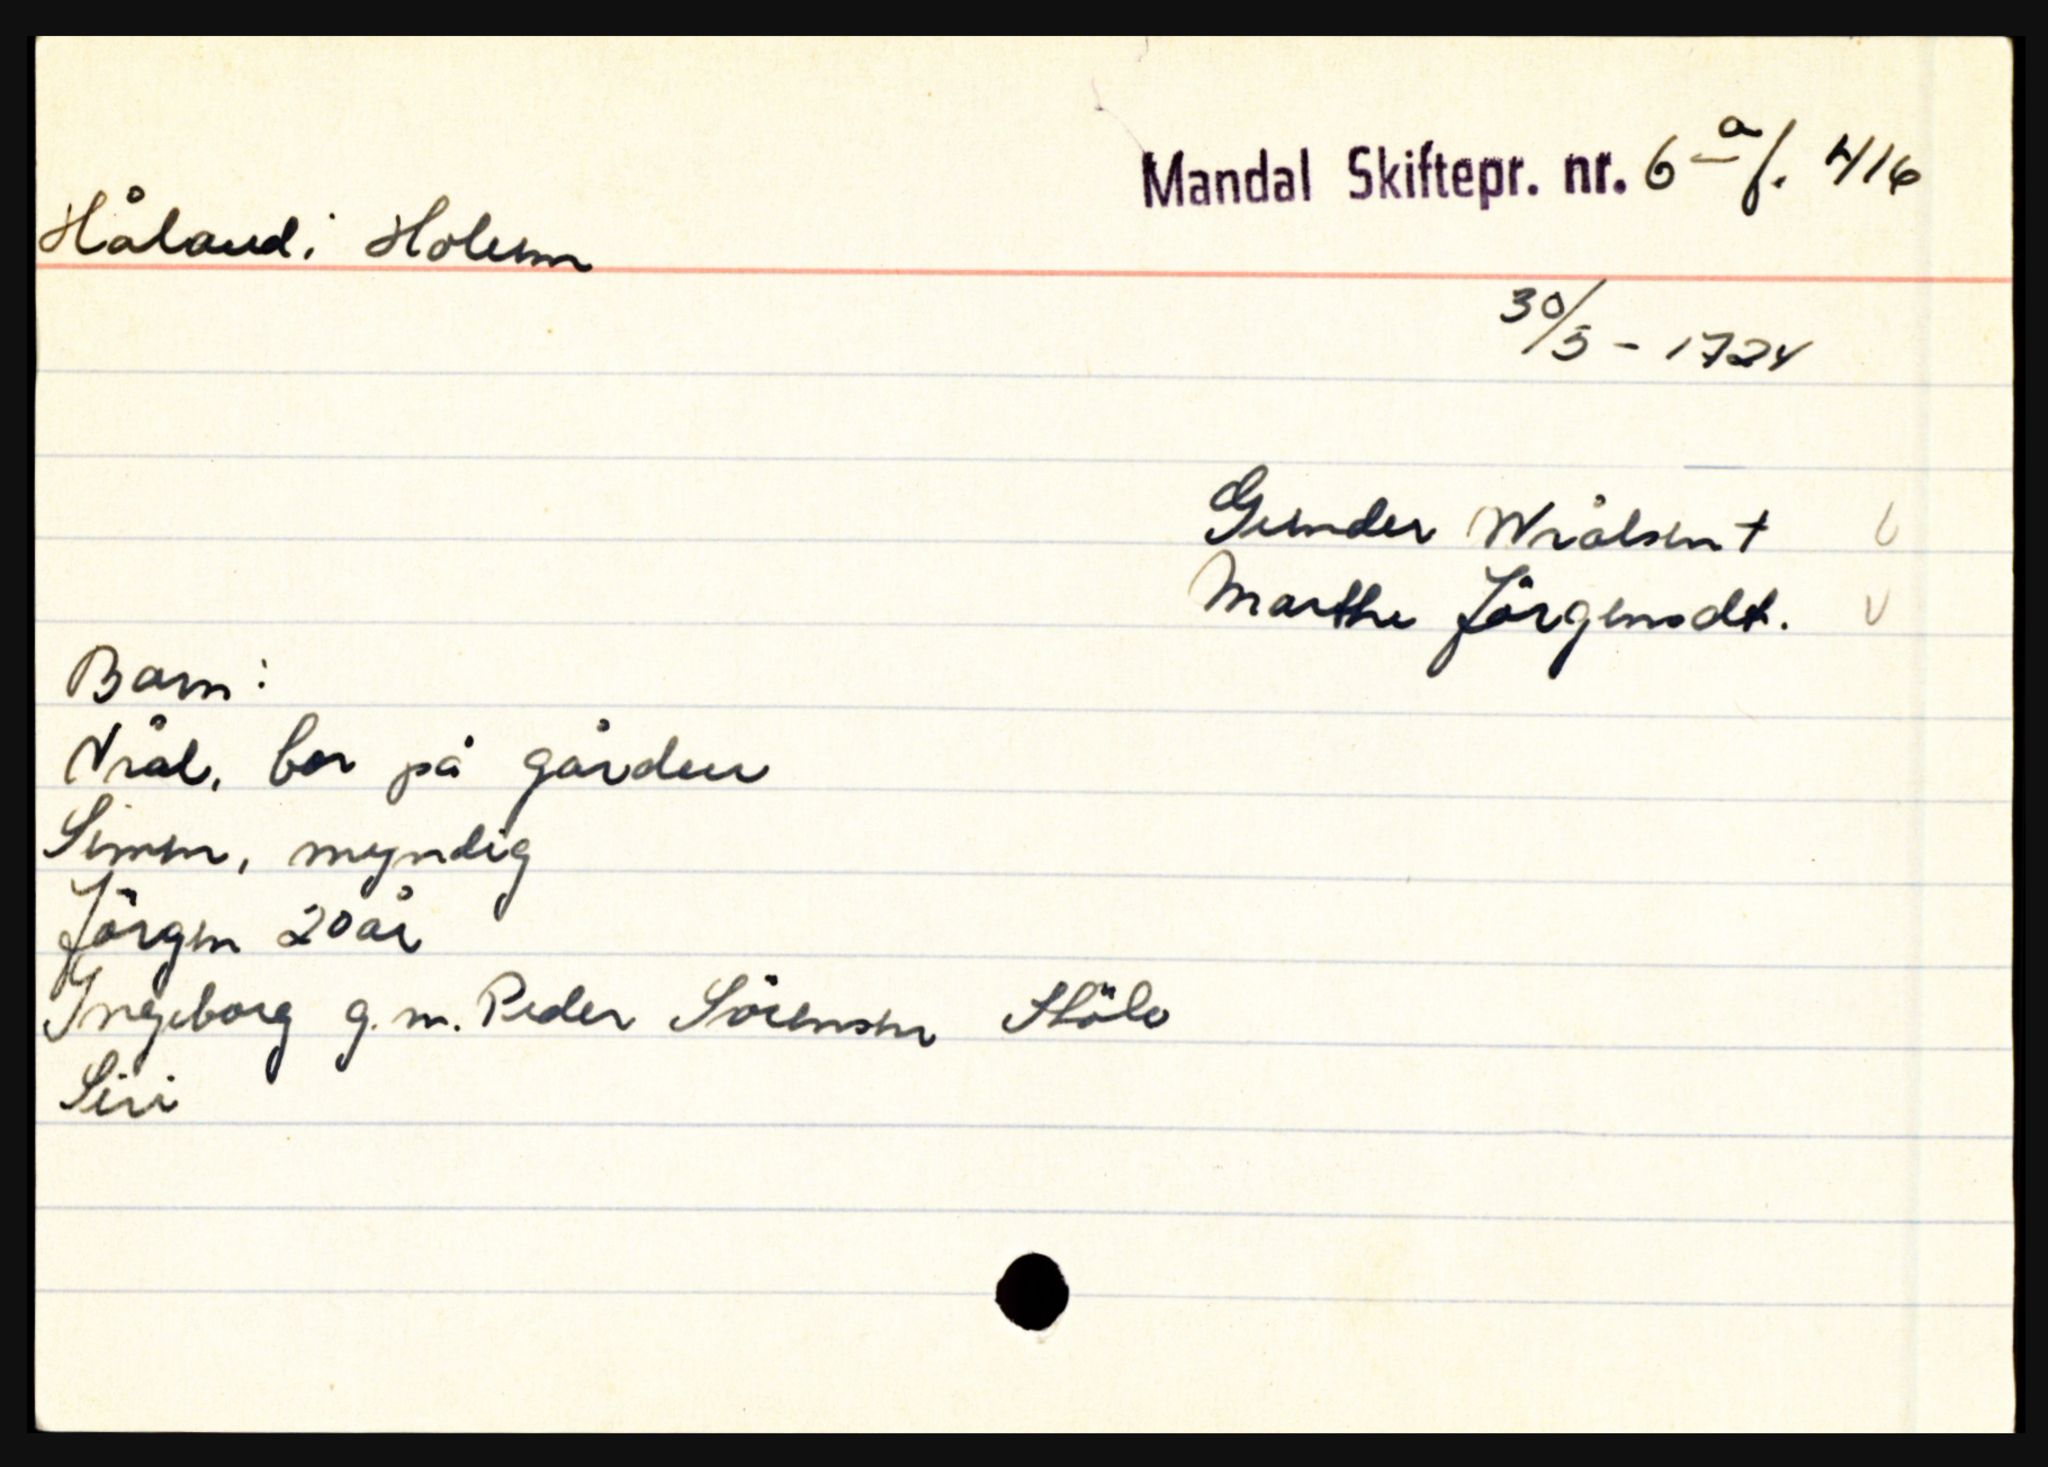 Mandal Skiftepr. nr. 6 a f. 416
Håland i Holum
30/5 - 1724
Gunder Wrålsen +
Marthe Jörgensdt.
Barn:
Vrål, bor på gården
Simen, myndig
Jörgen 20 år
Ingeborg g. m. Peder Sörensen
Siri